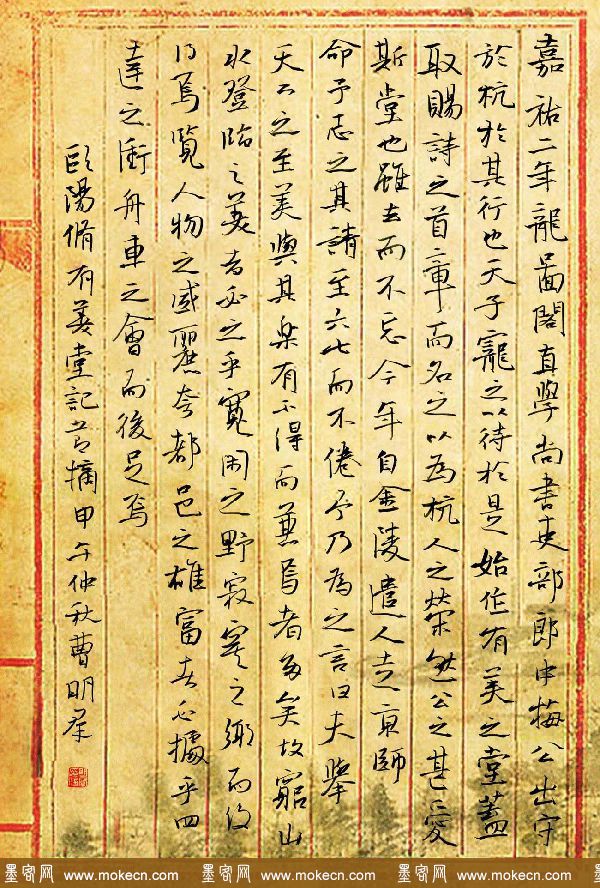 嘉祐二年龍圖閣直學尚書吏部郎中梅公出守
於杭於其行也天子寵之以待於是始作有美之堂蓋
取賜詩之首章而名之以為杭人之榮然公之甚愛
斯堂也雖去而不忘今年自金陵遣人走京師
命予志之其請至六七而不倦予乃為之言曰夫舉
天下之至美與其樂有不得而兼焉者多矣故窮山
水登臨之美者必之乎寬閑之野寂寞之鄉而後
得焉覽人物之盛麗夸都邑之雄富者必據乎四
達之衝舟車之會而後足焉
歐陽脩有美堂記節摘甲午仲秋曹明群
墨客网 www.mokecn.com 墨客网 www.mokecn.com 墨客网 www.mokecn.com